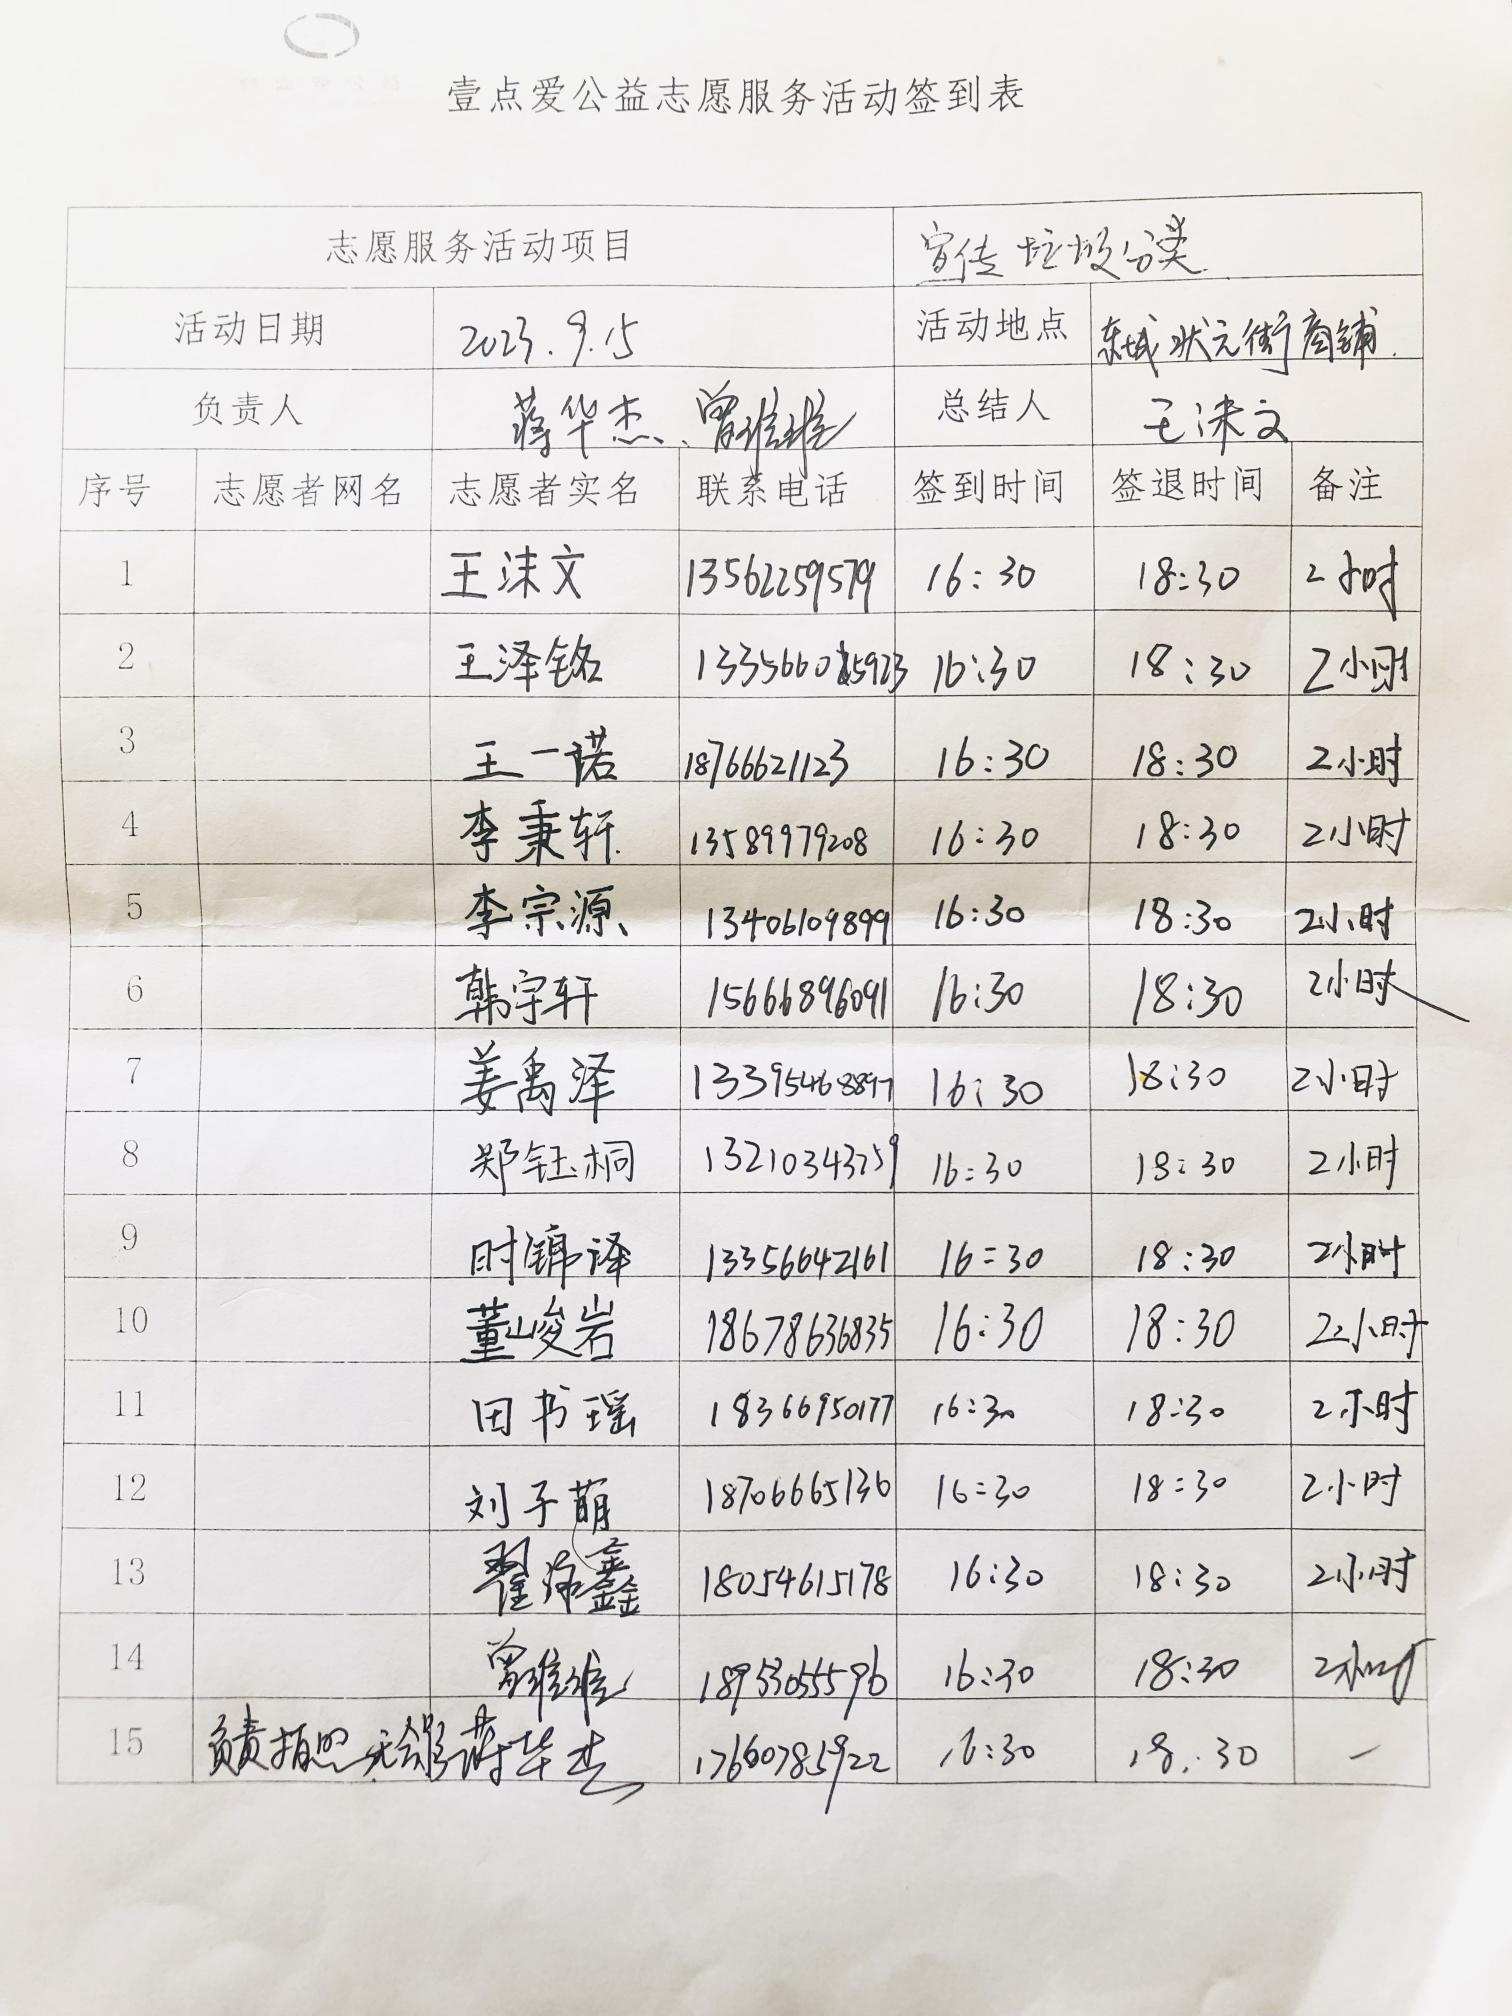 壹点爱公益志愿服务活动签到表
志愿服务活动项目 宣传垃圾分类
活动日期 2023.9.15 活动地点 东城状元街商铺.
负责人 蒋华杰、曾维维 总结人 王沫文
序号 志愿者网名 志愿者实名 联系电话 签到时间 签退时间 备注
1 王沫文 13562259579 16:30 18:30 2小时
2 王泽铭 16:30 18:30 2小时
3 王一诺 18766621123 16:30 18:30 2小时
4 李秉轩 13589979208 16:30 18:30 2小时
5 李宗源 13406109899 16:30 18:30 2小时
6 韩宇轩 15666896091 16:30 18:30 2小时
7 姜禹泽 13395468897 16:30 18:30 2小时
8 郑钰桐 13210343759 16:30 18:30 2小时
9 时锦译 13356642161 16:30 18:30 2小时
10 董峻岩 18678636835 16:30 18:30 2小时
11 田书瑶 18366950177 16:30 18:30 2小时
12 刘子萌 18706665136 16:30 18:30 2小时
13 18054615178 16:30 18:30 2小时
14 曾维维 18953055596 16:30 18:30 2小时
15 负责拍照 蒋华杰 17660785922 16:30 18.30 —